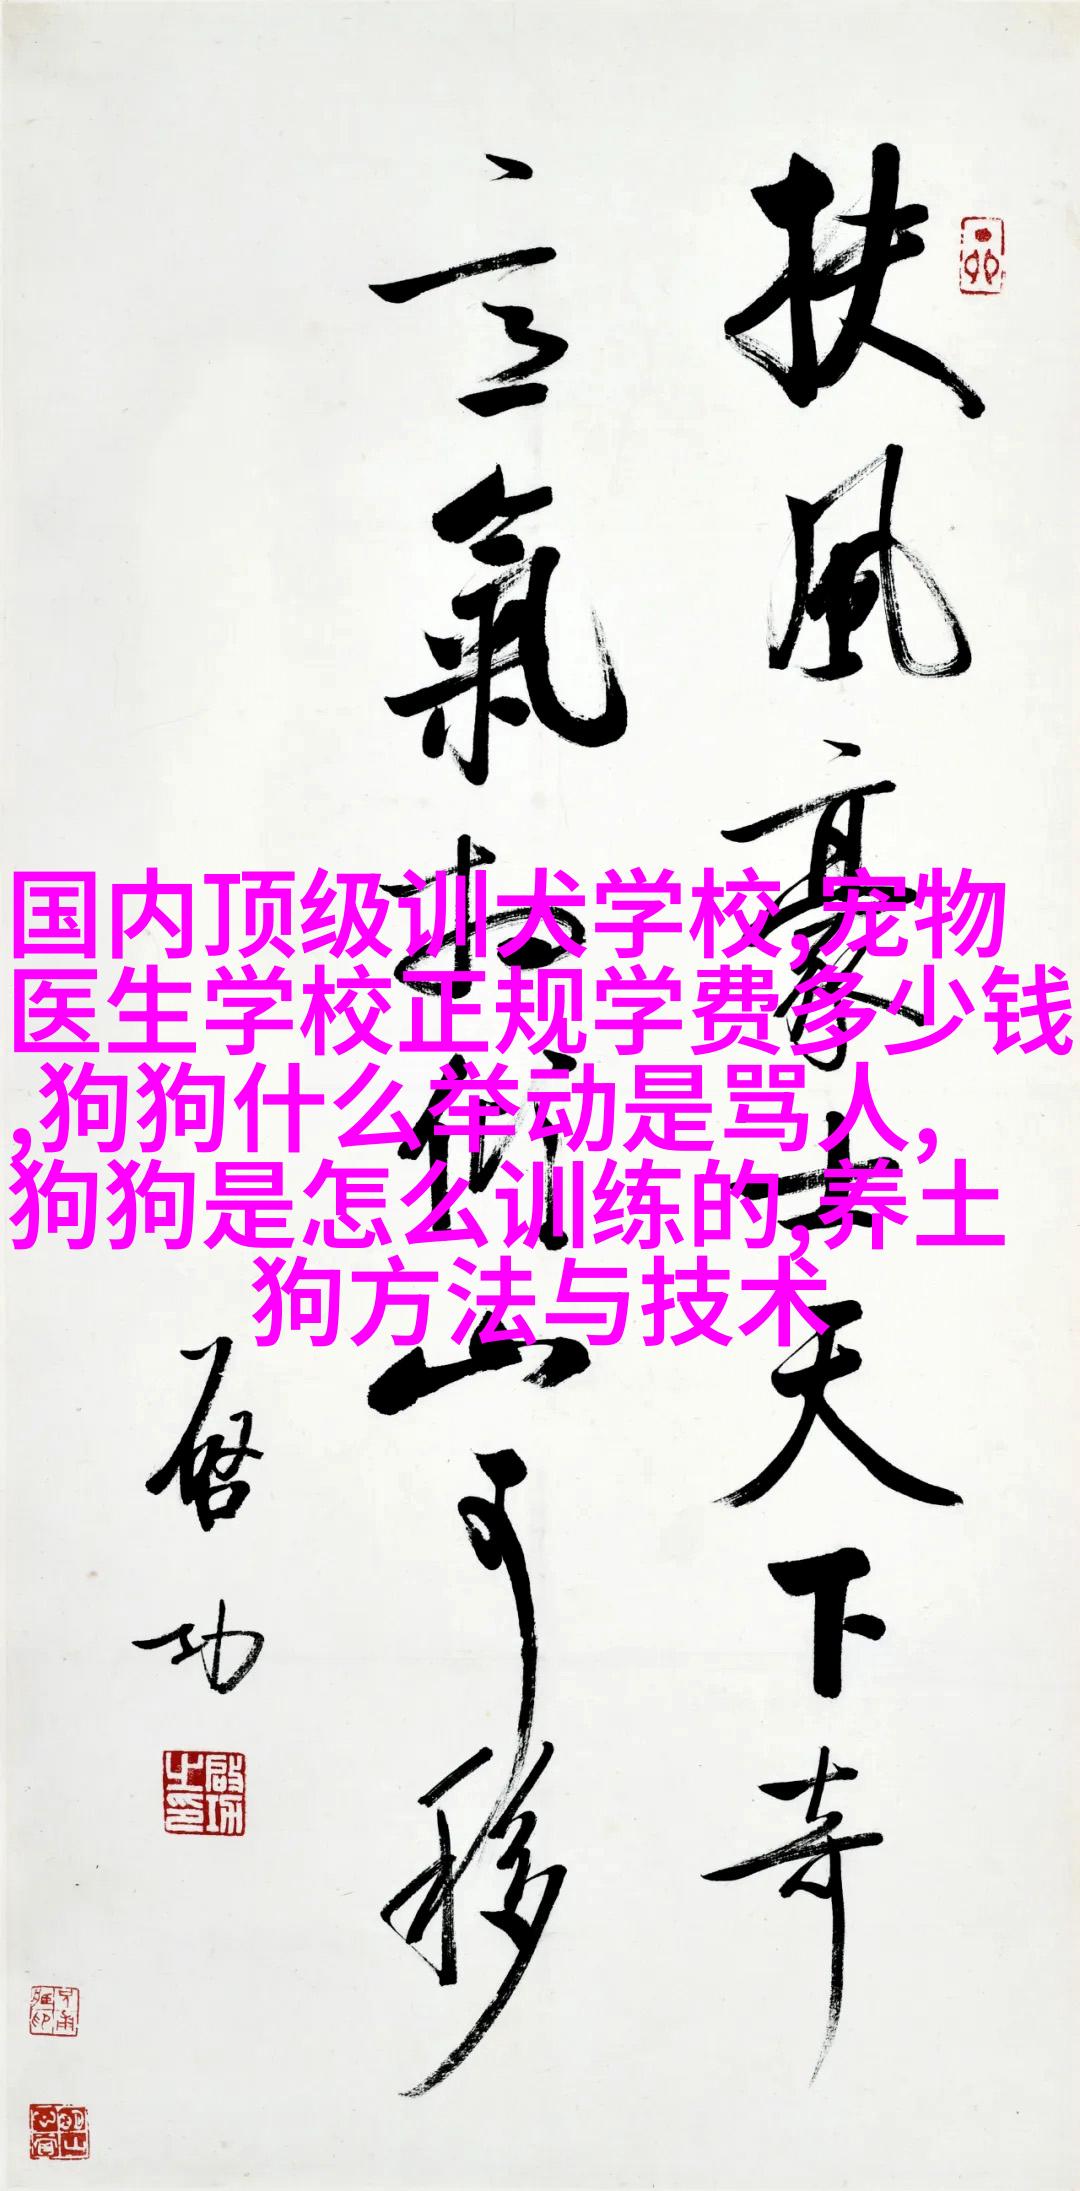 扶風豪士天下奇
意氣相傾山可移
啓功
啟功之印
国内顶级训犬学校,宠物
医生学校正规学费多少钱
,狗狗什么举动是骂人,
狗狗是怎么训练的,养土
狗方法与技术